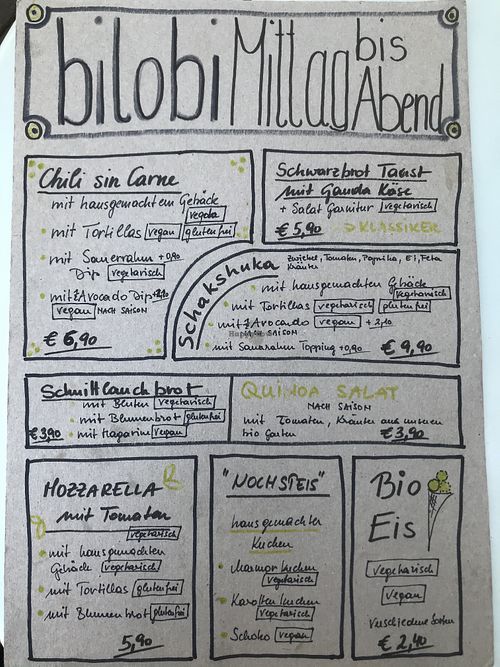 bilobi Mittag bis Abend
Chili sin Carne
mit hausgemachtem Gebäck
vegan
mit Tortillas vegan glutenfrei
mit Sauerrahm +0,90
Dip vegetarisch
mit Avocado Dip
vegan NACH SAISON
€ 6,90
Schwarzbrot Toast
mit Gauda Käse
+ Salat Garnitur vegetarisch
€ 5,90 KLASSIKER
Schakshuka
Zwiebel, Tomaten, Paprika, Ei, Feta
Kräuter
mit hausgemachten Gebäck
vegetarisch
mit Tortillas vegetarisch glutenfrei
mit Avocado vegan + 2,10
NACH SAISON
mit Sauerrahm Topping +0,90
€ 9,90
Schnittlauchbrot
mit Butter vegetarisch
mit Blumenbrot glutenfrei
€ 3,90 mit Magarine vegan
QUINOA SALAT
NACH SAISON
mit Tomaten, Kräuter aus unseren
bio Garten € 3,90
MOZZARELLA
mit Tomaten
vegetarisch
mit hausgemachten
Gebäck vegetarisch
mit Tortillas glutenfrei
mit Blumenbrot glutenfrei
5,90
"NOCHSTEIS"
hausgemachter
Kuchen
Marmorkuchen
vegetarisch
Karottenkuchen
vegetarisch
Schoko vegan
Bio
Eis
vegetarisch
vegan
verschiedene Sorten
€ 2,40